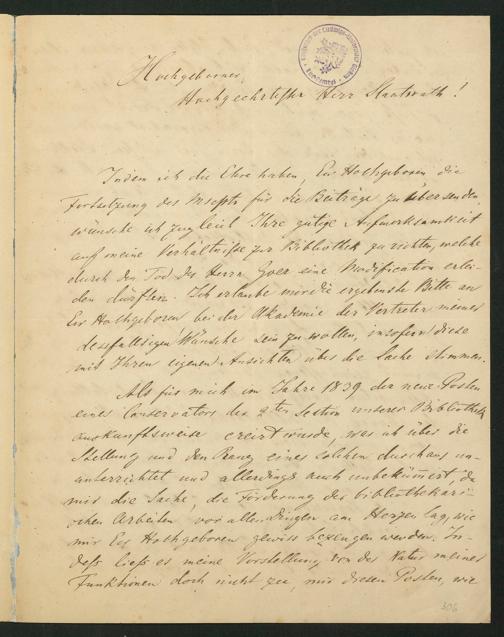 Hochgeborner,
Hochgeehrtester Herr Staatsrath!
Indem ich die Ehre habe, Ew Hochgeboren die
Fortsetzung des Mscpts für die Beiträge zu übersenden,
wünsche ich zugleich Ihre gütige Aufmerksamkeit
auf meine Verhältnisse zur Bibliothek zu richten, welche
durch den Tod des Herrn Goer eine Modification erlei-
den dürften. Ich erlaube mir die ergebenste Bitte an
Ew Hochgeboren bei der Akademie der Vertreter meiner
desfallsigen Wünsche sein zu wollen, insofern diese
mit Ihren eigenen Ansichten über die Sache stimmen.
Als für mich im Jahre 1839 der neue Posten
eines Conservators der 2ten Section unserer Bibliothek
auskunftsweise creirt wurde, war ich über die
Stellung und den Rang eines solchen durchaus un-
unterrichtet und allerdings auch unbekümmert, da
mir die Sache, die Förderung der bibliothekari-
schen Arbeiten vor allen Dingen am Herzen lag, wie
mir Ew Hochgeboren gewiss bezeugen werden. In-
dess liess es meine Vorstellung von der Natur meiner
Funktionen doch nicht zu, mir diesen Posten, wie
306